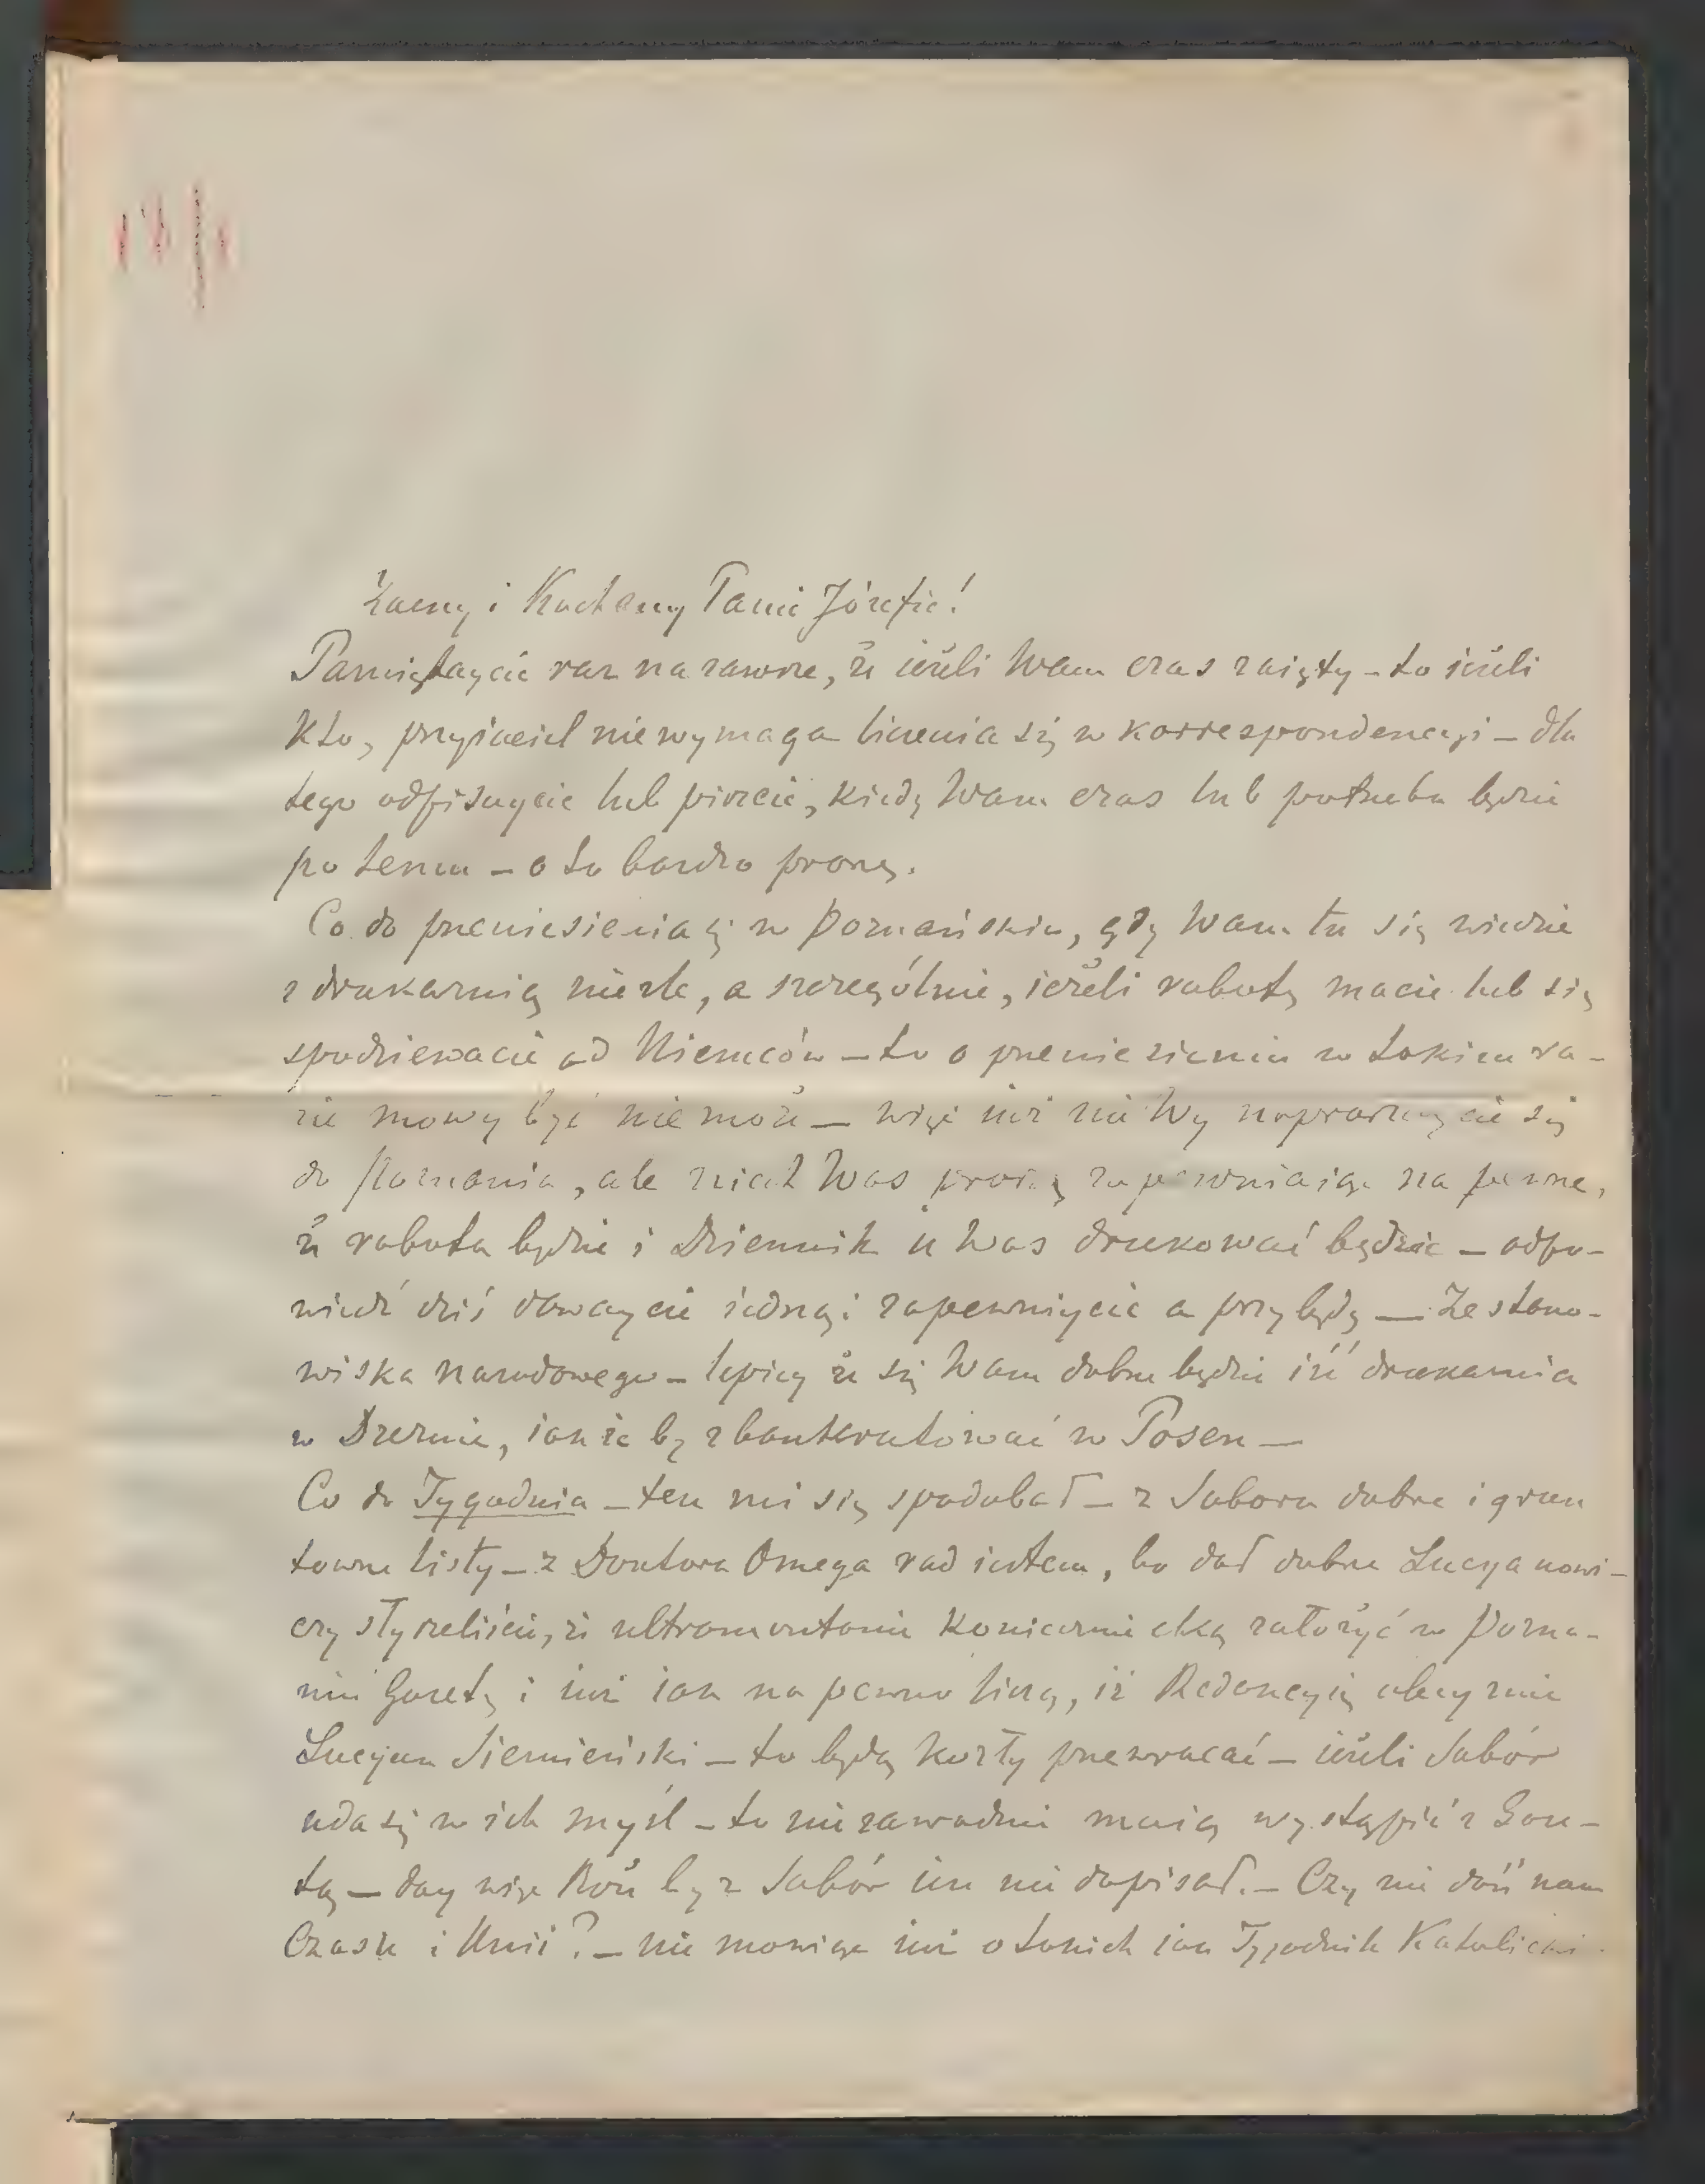 Zacny i Kochany Panie Józefie!
Pamiętaycie raz na zawsze, że ieżeli Wam czas zaięty – to ieżeli
kto, przyiaciel nie wymaga liczenia się w korrespondencyi – dla
tego odpisuycie lub piszcie, kiedy Wam czas lub potrzeba będzie
po temu – o to bardzo proszę.
Co do przeniesienia się w Poznańskie, gdy Wam tu się wiedzie
z drukarnią nieźle, a szczególnie, ieżeli robotę macie lub się
spodziewacie od Niemców – to o przeniesieniu w takim ra-
zie mowy być nie może – więc iuż nie Wy napraszaycie się
do Poznania, ale niech Was proszą zapewniaiąc na pewne,
że robota będzie i Dziennik u Was drukować będzie – odpo-
wiedź dziś dawaycie iedną: zapewniycie a przybędę — Ze stano-
wiska narodowego – lepiey że się Wam dobrze będzie iść drukarnia
w Dreźnie, iak żeby zbankrutować w Posen —
Co do Tygodnia – ten mi się spodobał – z Soboru dobre i grun
towne listy – z Doktora Omega rad iestem, bo dał dobrze Lucyanowi –
czy słyszeliście, że ultramontanie koniecznie chcą założyć w Pozna-
niu Gazetę i iuż iak na pewno liczą, iż Redakcyią obeymie
Lucyan Siemieński – to będą kozły przewracać – ieżeli Sobór
uda się w ich myśl – to niezawodnie maią wystąpić z Gaze-
tą – day więc Boże by z Sobór im nie dopisał. – Czy nie dość nam
Czasu i Unii? – nie mowiąc iuż o takich iak Tygodnik Katolicki.